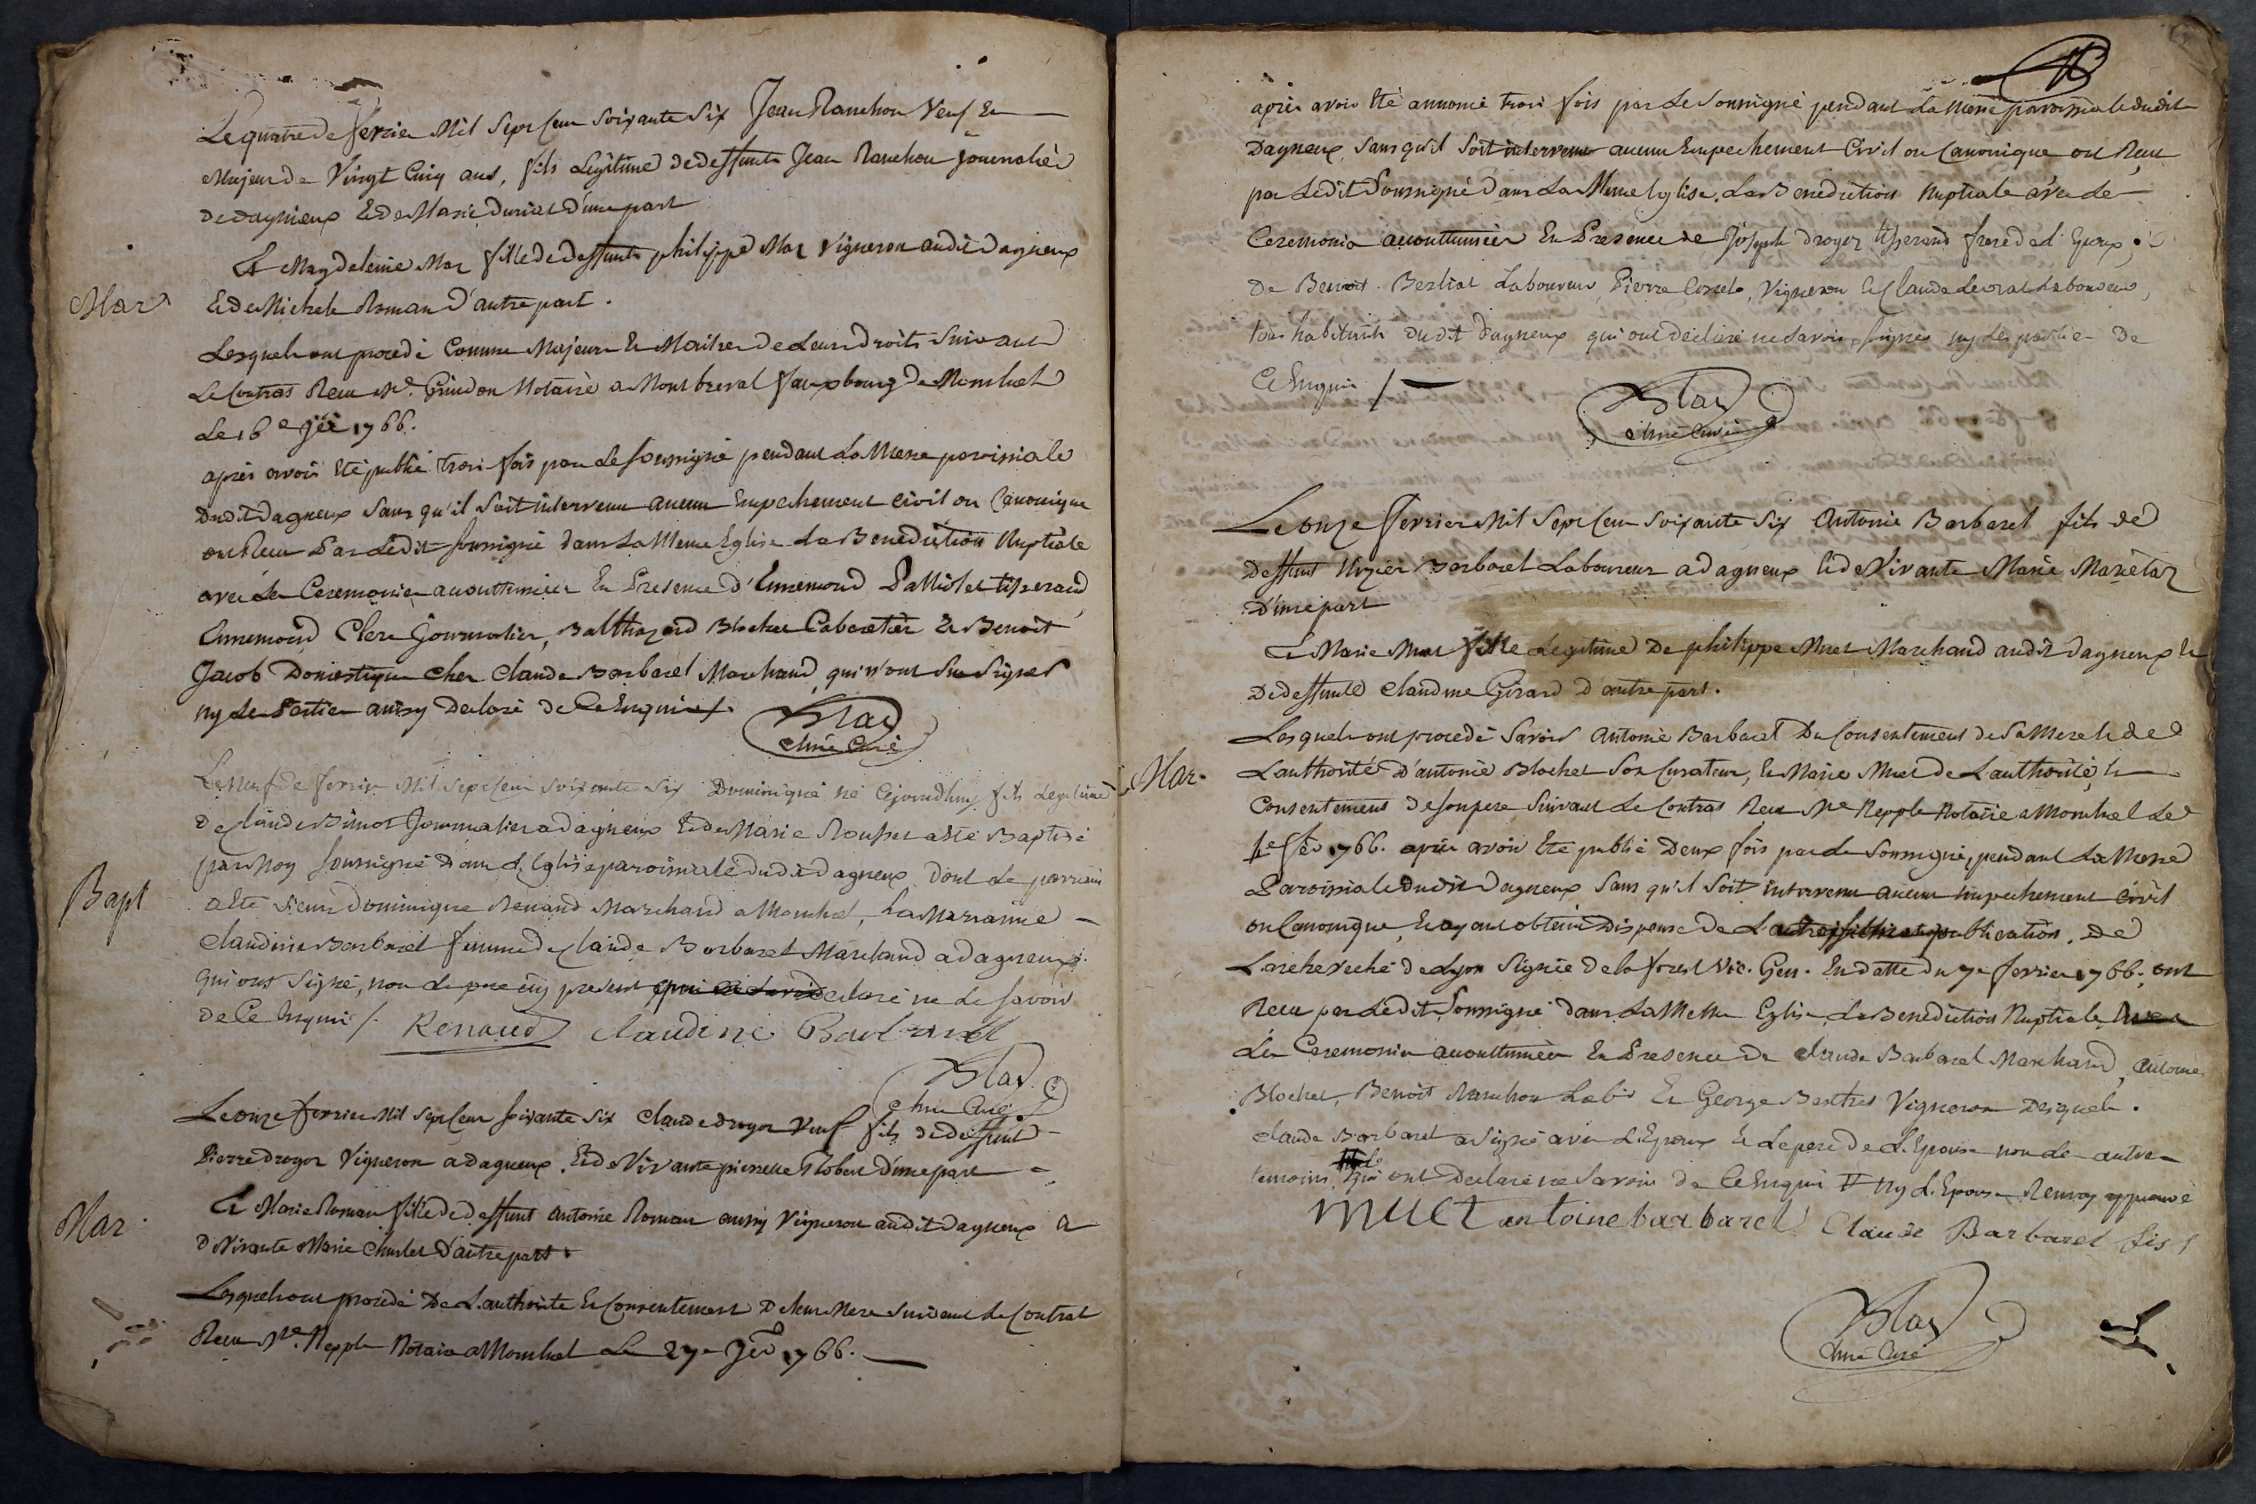 Le quatre de fevrier Mil Sept Cent Soixante Six Jean Ranchon Veuf Et
Majeur de Vingt Cinq ans, fils Legitime de deffunts Jean Ranchon journalier
de dagnieux Et de Marie Duriat d'une part
Et Magdeleine Mar fille de deffunts philippe Mar Vigneron audit Dagneux
Mar
Et de Michele Roman d'autre part.
Lesquels ont procedé Comme Majeurs Et Maitres de Leurs Droits Suivant
Le Contras Recu Me. Grindon Notaire a Montbreval fauxbourg de Monluel
Le 16e jer 1766.
après avoir Eté publié trois fois par Le soussigné pendant La Messe paroissiale
Dudit Dagneux Sans qu'il Soit intervenu aucun Empechement Civil ou Canonique
ont Recu Par Ledit soussigné dans La Meme Eglise La Benediction Nuptiale
avec Les Ceremonies accouttumées En Presence d'Ennemond Palliolet tisserand
Ennemond Clerc Journalier, Balthazard Blochet Cabaretier Et Benoit
Jacob Domestique Chez Claude Barbaret Marchand, qui n'ont Su Signer
ny Les Parties aussy Declaré de Ce Enquis /.
Blad
Chne Curé
Le Neuf de fevrier Mil Sept Cent Soixante Six Dominique né Cejourdhuy fils Legitime
De Claude Binot Journalier a dagneux Et de Marie Rousset a eté Baptisé
par Moy soussigné dans L'Eglise paroissiale dudit dagneux Dont Le parrain
Bapt
a Eté sieur Dominique Renaud Marchand a Monluel, La Marainne
Claudine Barbaret femme de Claude Barbaret Marchand a dagneux
qui ont Signé, non Le pere icy present qui declaré ne Le Savoir
de Ce Enquis /. Renaud Claudine Barbaret
Blad
Chne Curé
Le onze fevrier Mil Sept Cent soixante Six Claude droyer Veuf fils de deffunt
Pierre droyer Vigneron a dagneux, Et de Vivante pierrette Robert d'une part
Et Marie Roman fille de deffunt Antoine Roman aussy Vigneron audit Dagneux Et
Mar.
De Vivante Marie Charlet D'autre part.
Lesquels ont procedé De L'authorité Et Consentement De leur Mere Suivant Le Contrat
Recu Me. Nepple Notaire a Monluel Le 27e jer 1766.
après avoir Eté annoncé trois fois par Le Soussigné pendant La Messe paroissiale dudit
Dagneux, Sans qu'il Soit intervenu aucun Empechement Civil ou Canonique ont Recu
par Ledit Soussigné Dans La Meme Eglise, La Benediction Nuptiale avec Les
Ceremonies accouttumées En Presence de Joseph droyer tisserand frere de L'Epoux,
De Benoit Berliat Laboureur, Pierre, Vigneron Et Claude Laboureur,
tous habitants dudit dagneux qui ont declaré ne Savoir Signer ny Les parties De
Ce Enquis /.
Blad
Chne Curé
Le onze fevrier Mil Sept Cent Soixante Six Antoine Barbaret fils de
Deffunt Barbaret Laboureur a dagneux Et de Vivante Marie
D'une part
Et Marie Muet fille Legitime De philippe Muet Marchand audit dagneux Et
De deffunte Claudine Girard d'autre part.
Lesquels ont procedé Savoir Antoine Barbaret Du Consentement de Sa Mere Et de
Mar.
L'authorité D'antoine Blochet Son Curateur, Et Marie Muet de L'authorité, Et
Consentement de Son pere Suivant Le Contras Recu Me Nepple Notaire a Monluel Le
fer 1766. après avoir Eté publié Deux fois par Le Soussigné, pendant La Messe
Paroissiale Dudit Dagneux Sans qu'il Soit intervenu aucun Empechement Civil
ou Canonique, Et ayant obtenu Dispense De La troisieme publication, De
L'archeveché de Lyon Signée De la forest Vic. Gen. En datte du 7e fevrier 1766, ont
Recu par Ledit Soussigné Dans La Meme Eglise, La Benediction Nuptiale avec
Les Ceremonies accouttumées En Presence De Claude Barbaret Marchand, Antoine
Blochet, Benoit Ranchon Labr Et George Berthet Vigneron Desquels
Claude Barbaret a Signé avec L'Epoux Et Le pere De L'Epouse non Les autres
temoins qui ont Declaré ne Savoir De Ce Enquis # ny L'Epouse Renvoy approuvé
muet antoine barbaret Claude Barbaret fils
Blad
Chne Curé